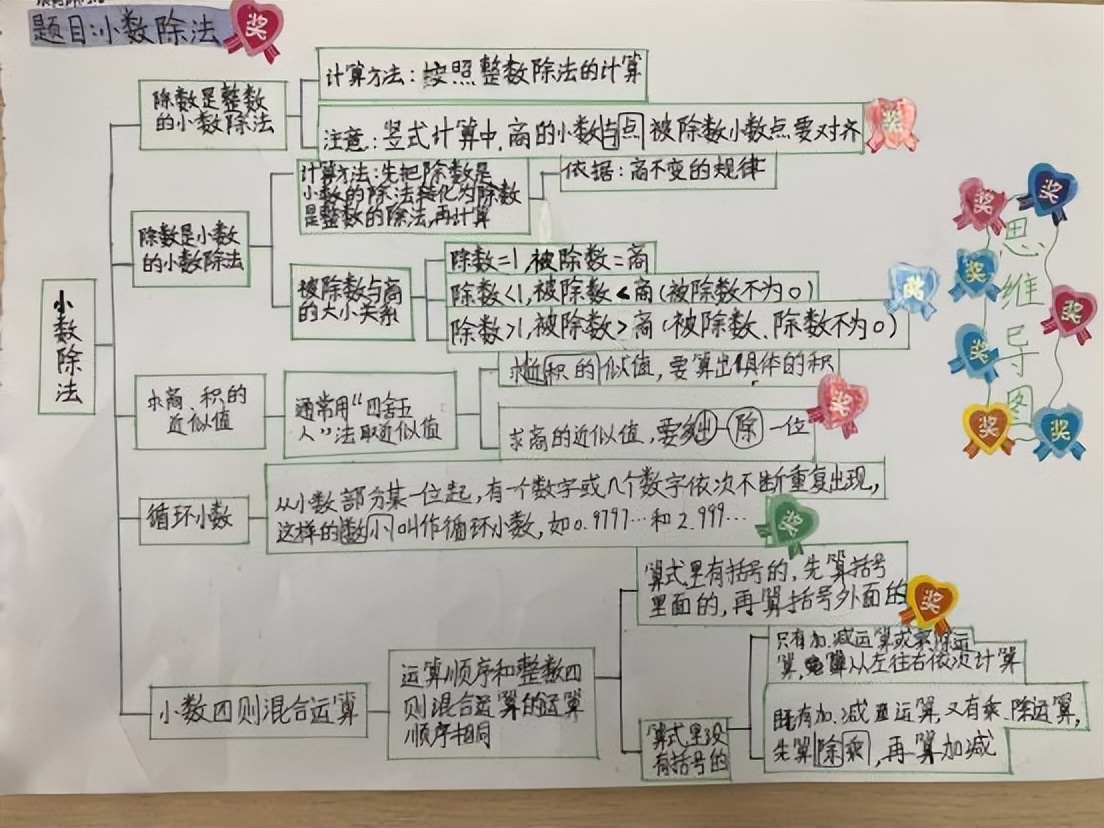 题目:小数除法
奖
小数除法
除数是整数
的小数除法
计算方法:按照整数除法的计算
注意:竖式计算中,商的小数与点被除数小数点要对齐
奖
除数是小数
的小数除法
计算方法:先把除数是
小数的除法转化为除数
是整数的除法,再计算
依据:商不变的规律
被除数与商
的大小关系
除数=1,被除数=商
除数<1,被除数<商(被除数不为0)
除数>1,被除数>商(被除数、除数不为0)
奖
求商、积的
近似值
通常用“四舍五
入”法取近似值
求近积的似值,要算出具体的积
求商的近似值,要多出除一位
奖
循环小数
从小数部分某一位起,有一个数字或几个数字依次不断重复出现,
这样的数小叫作循环小数,如0.9777…和2.999…
奖
小数四则混合运算
运算顺序和整数四
则混合运算的运算
顺序相同
算式里有括号的,先算括号
里面的,再算括号外面的
奖
算式里没
有括号的
只有加、减运算或乘除运
算,从左往右依次计算
既有加、减运算,又有乘、除运算,
先算除乘,再算加减
思维导图
奖
奖
奖
奖
奖
奖
奖